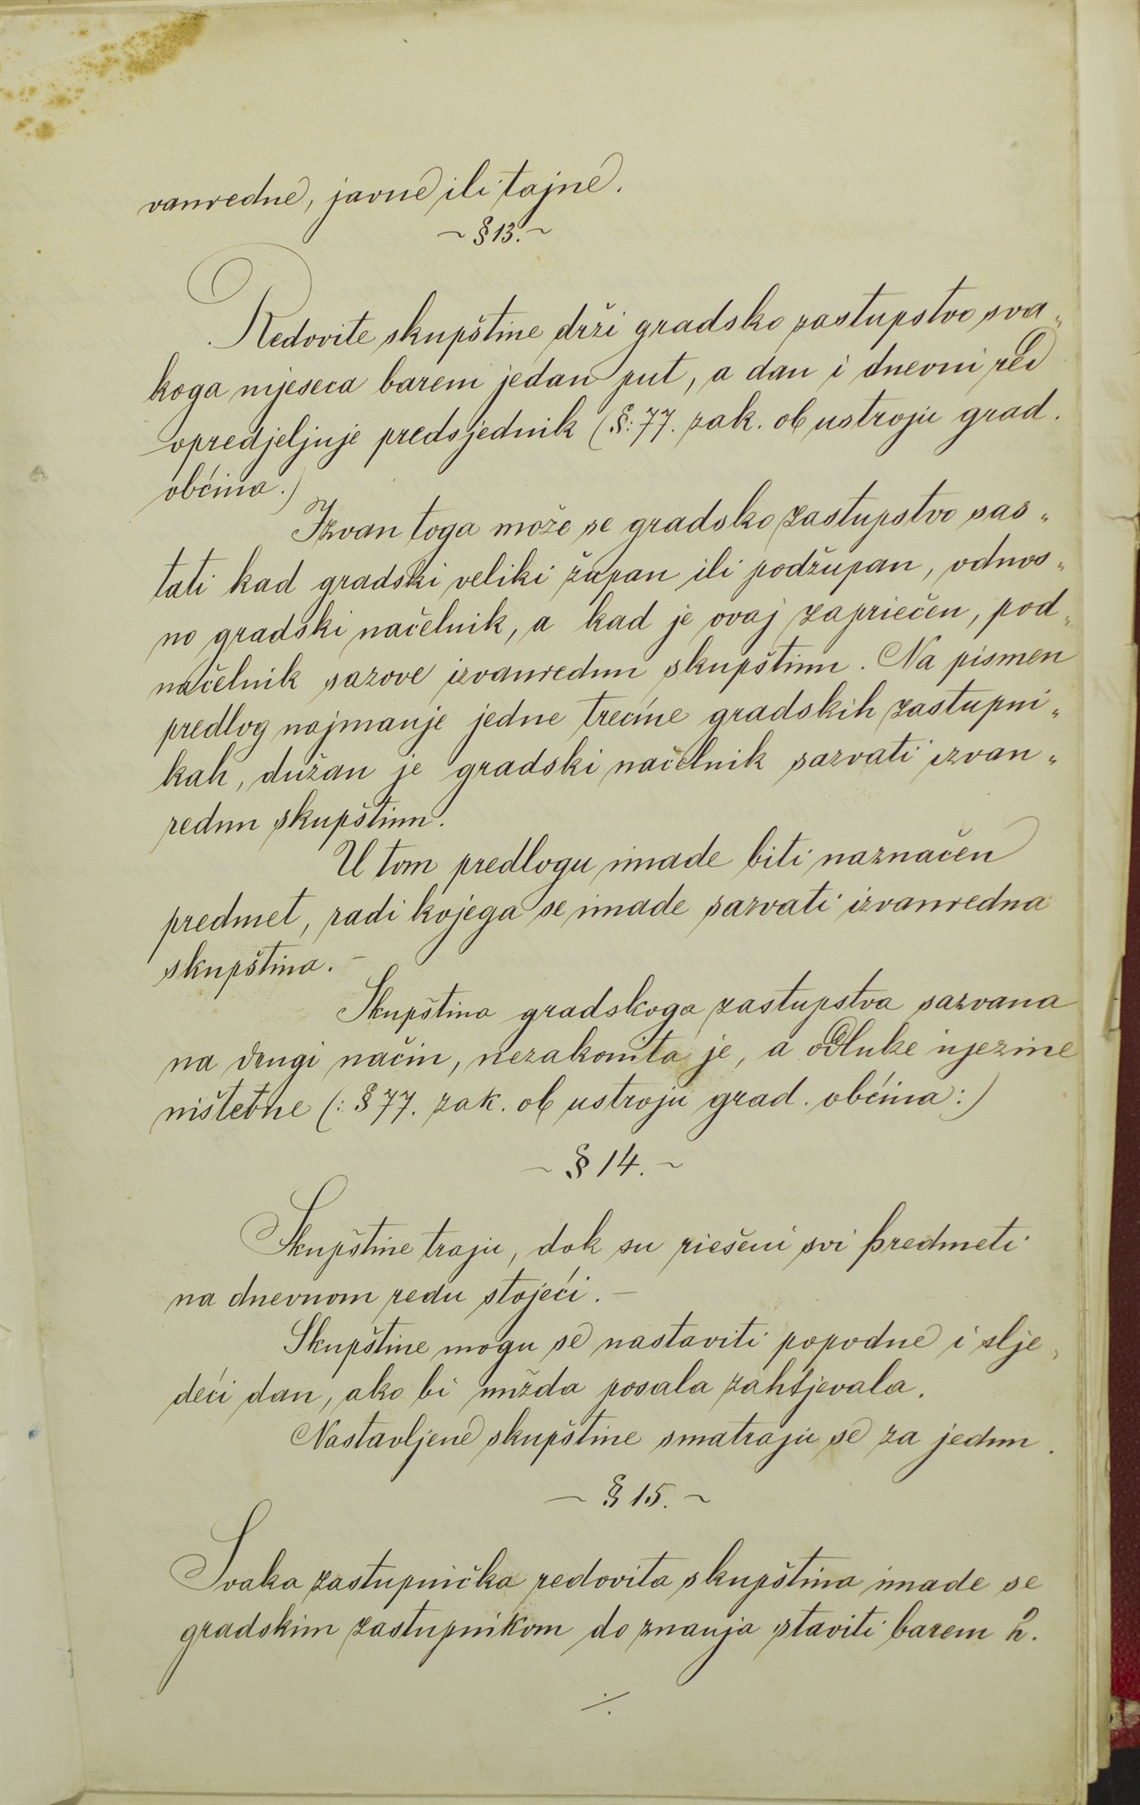 vanredne, javne ili tajne.
~ § 13. ~
Redovite skupštine drži gradsko zastupstvo sva„
koga mjeseca barem jedan put, a dan i dnevni red
opredjeljuje predsjednik (§: 77. zak. ob ustroju grad.
obćina.)
Izvan toga može se gradsko zastupstvo sas„
tati kad gradski veliki župan ili podžupan, odnos„
no gradski načelnik, a kad je ovaj zapriečen, pod„
načelnik sazove izvanrednu skupštinu. Na pismen
predlog najmanje jedne trećine gradskih zastupni„
kah, dužan je gradski načelnik sazvati izvan„
rednu skupštinu.
U tom predlogu imade biti naznačen
predmet, radi kojega se imade sazvati izvanredna
skupština. –
Skupština gradskoga zastupstva sazvana
na drugi način, nezakonita je, a odluke njezine
ništetne (: § 77. zak. ob ustroju grad. obćina :)
~ § 14. ~
Skupštine traju, dok su riešeni svi predmeti
na dnevnom redu stojeći. –
Skupštine mogu se nastaviti popodne i slje„
deći dan, ako bi nužda posala zahtjevala.
Nastavljene skupštine smatraju se za jednu.
~ § 15. ~
Svaka zastupnička redovita skupština imade se
gradskim zastupnikom do znanja staviti barem 2.
./.